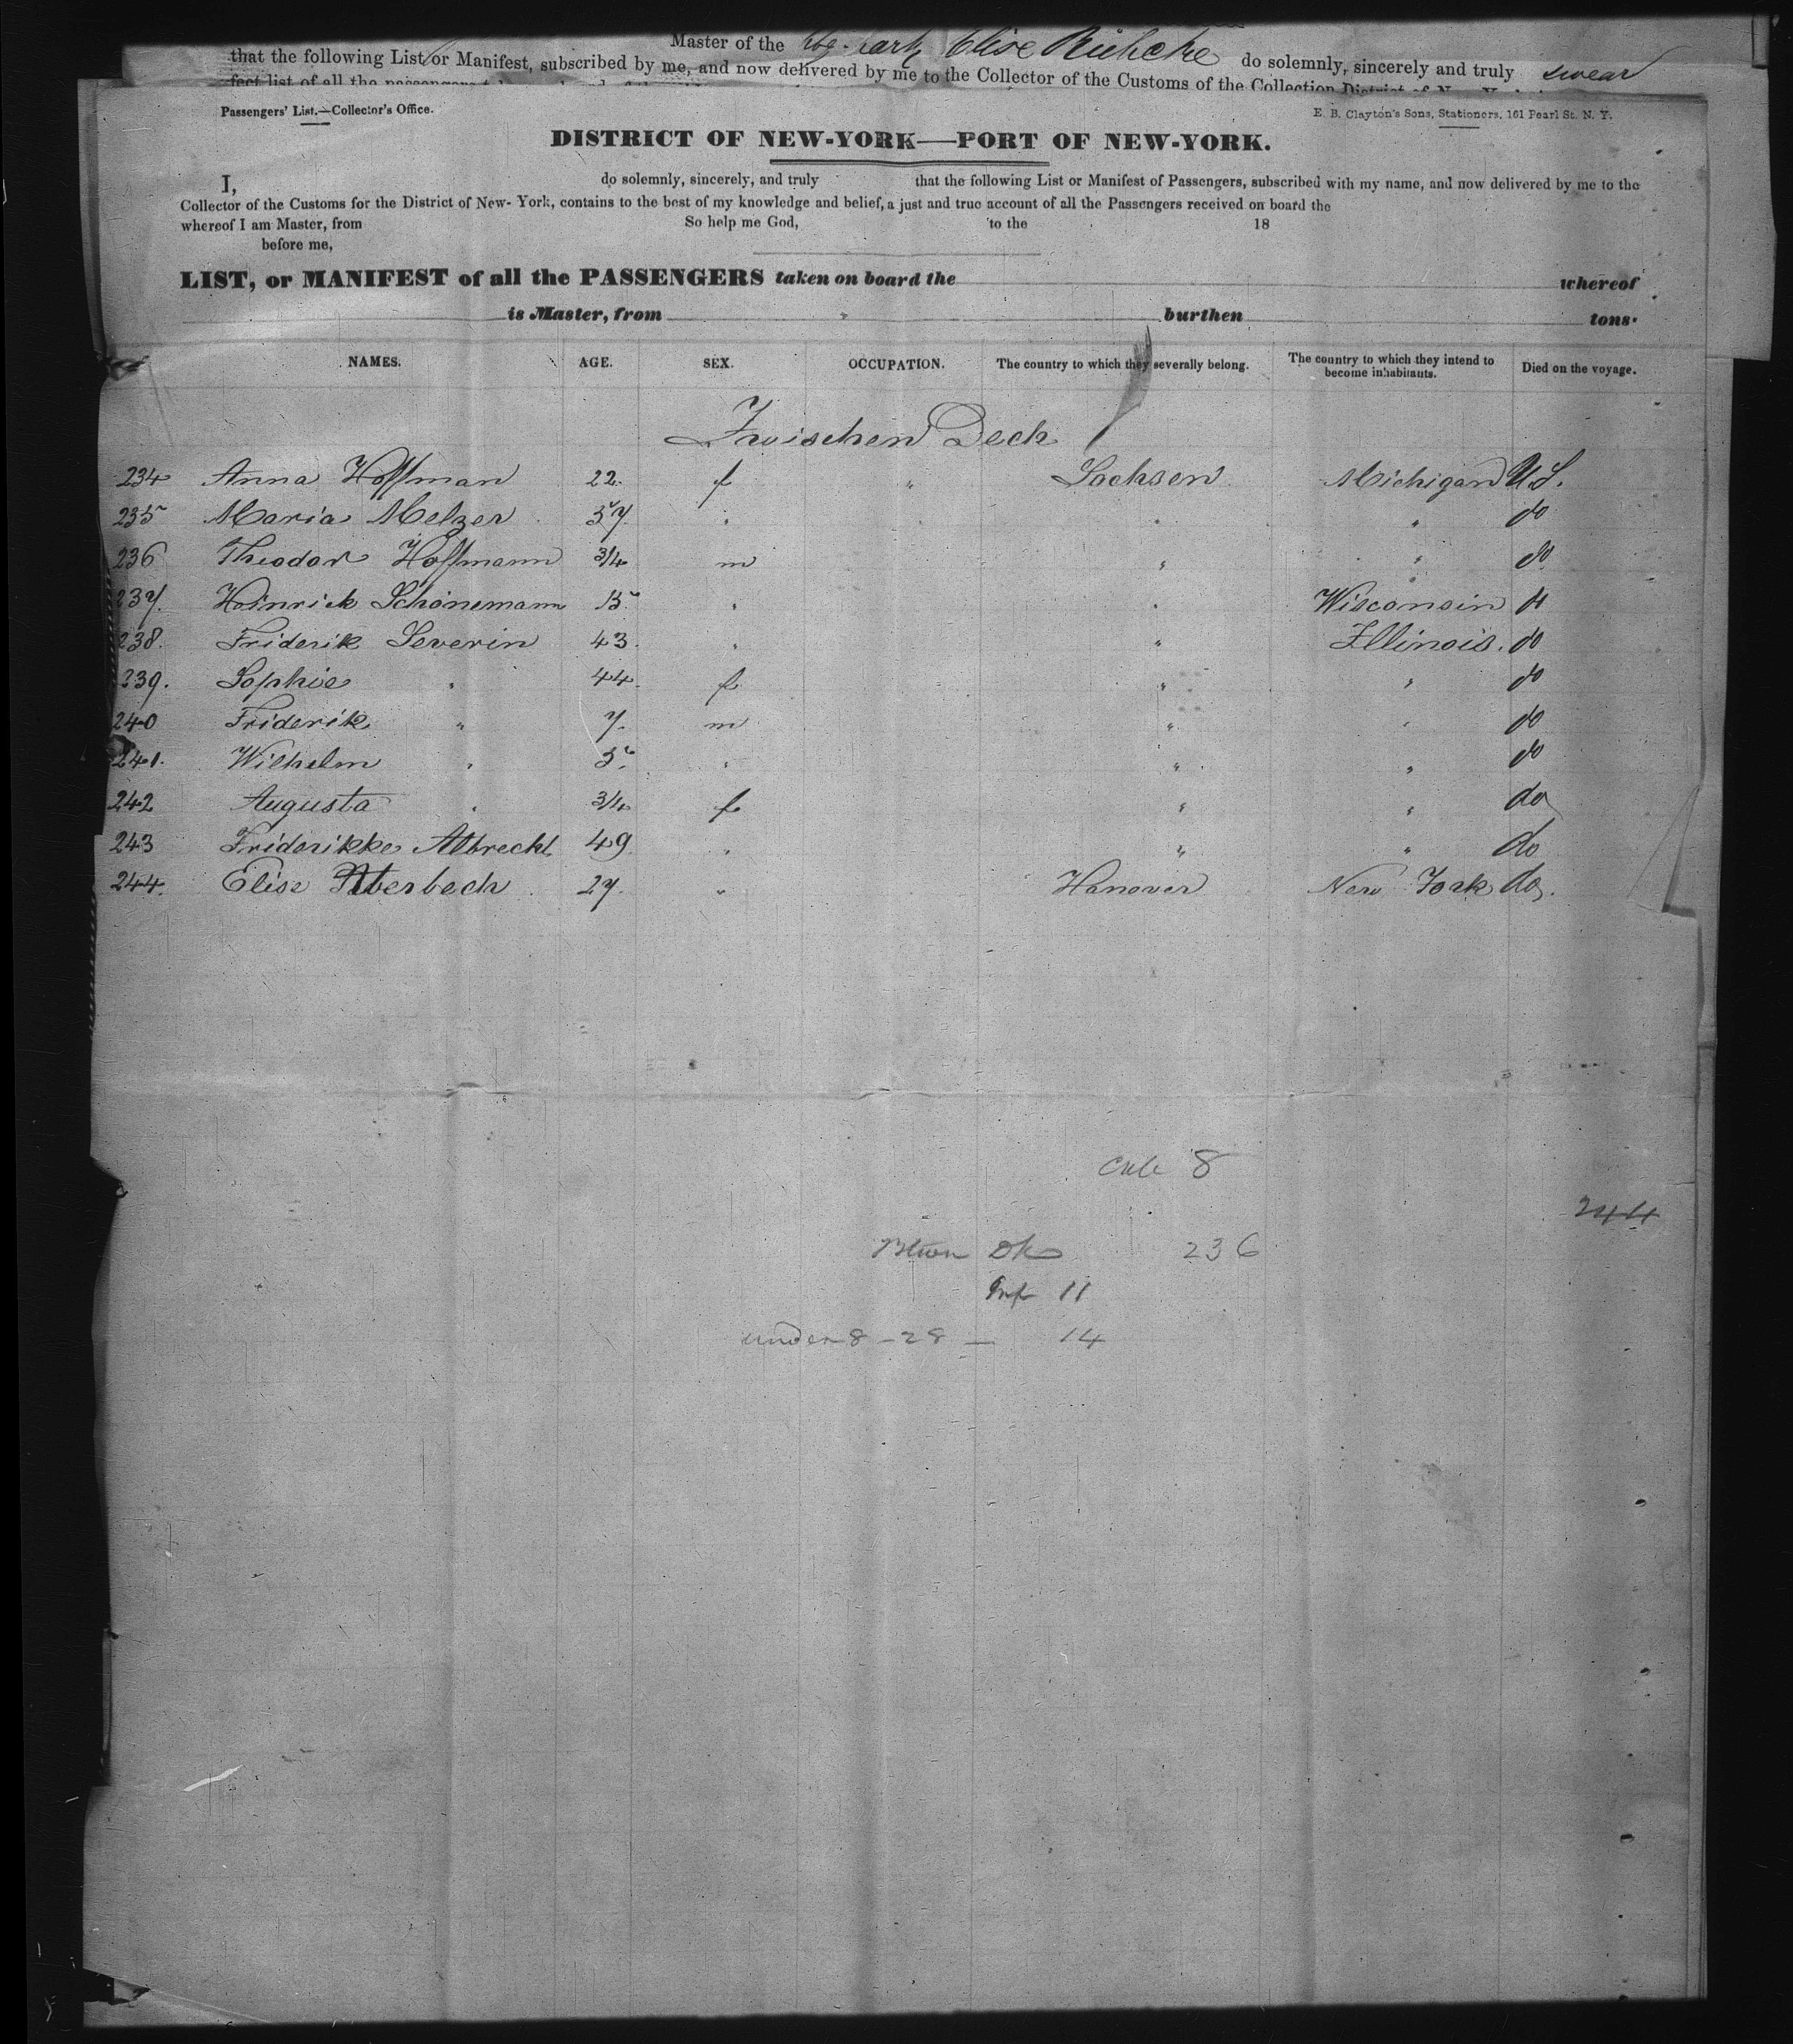 Master of the Hbg. bark Elise Rübcke do solemnly, sincerely and truly swear
that the following List or Manifest, subscribed by me, and now delivered by me to the Collector of the Customs of the Collection District of New-York
fect list of all the passengers
Passengers' List.—Collector's Office.
E. B. Clayton's Sons, Stationers, 161 Pearl St. N. Y.
DISTRICT OF NEW-YORK—PORT OF NEW-YORK.
I, do solemnly, sincerely, and truly that the following List or Manifest of Passengers, subscribed with my name, and now delivered by me to the
Collector of the Customs for the District of New-York, contains to the best of my knowledge and belief, a just and true account of all the Passengers received on board the
whereof I am Master, from So help me God, to the 18
before me,
LIST, or MANIFEST of all the PASSENGERS taken on board the whereof
is Master, from burthen tons.
NAMES. AGE. SEX. OCCUPATION. The country to which they severally belong. The country to which they intend to become inhabitants. Died on the voyage.
Zwischen Deck
234 Anna Hoffman 22. f " Sachsen Michigan U.S.
235 Maria Melzer 57. " " " do
236 Theodor Hoffmann 3/4 m " " do
237. Heinrich Schönemann 15. " " Wisconsin do
238. Friderik Severin 43. " " Illinois. do
239. Sophie " 44. f " " do
240 Friderik " 7. m " " do
241. Wilhelm " 5. " " " do
242 Augusta " 3/4 f " " do
243 Friderikke Albrecht 49 " " " do
244. Elise 27. " Hanover New York do.
Cab 8
244
Btwn Dk 236
Inf 11
under 8 - 28 — 14